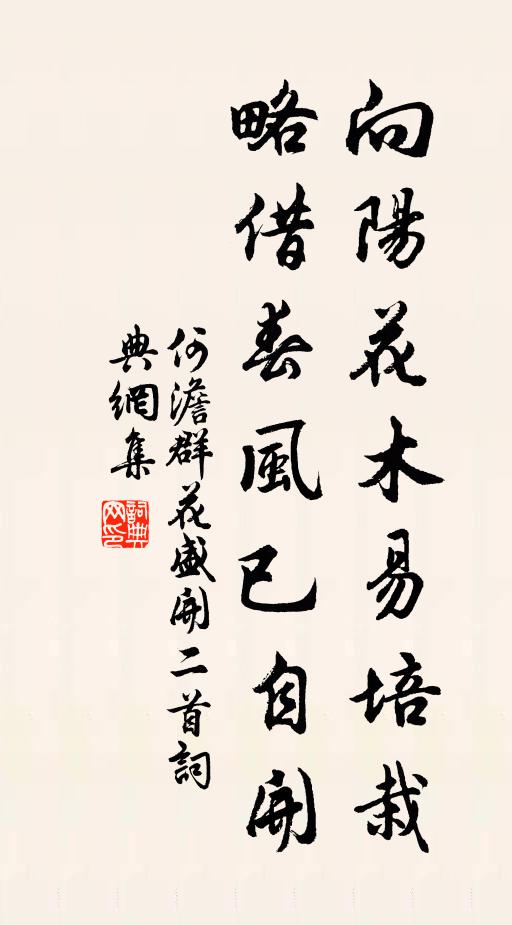 向陽花木易培栽
略借春風已自開
何澹群花盛開二首詞
典網集
詞典
网印